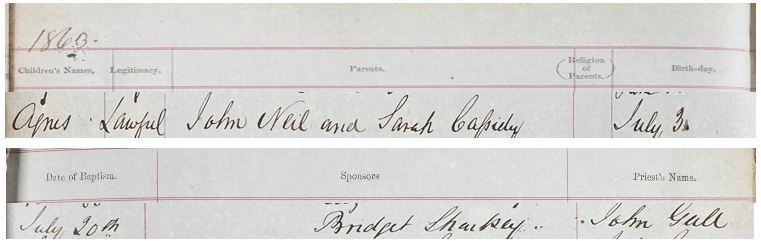 1863.
Children's Names, Legitimacy, Parents. Religion of Parents. Birth-day.
Agnes Lawful John Neil and Sarah Cassidy July 3.
Date of Baptism. Sponsors Priest's Name.
July 20th Bridget Sharkey John Gall